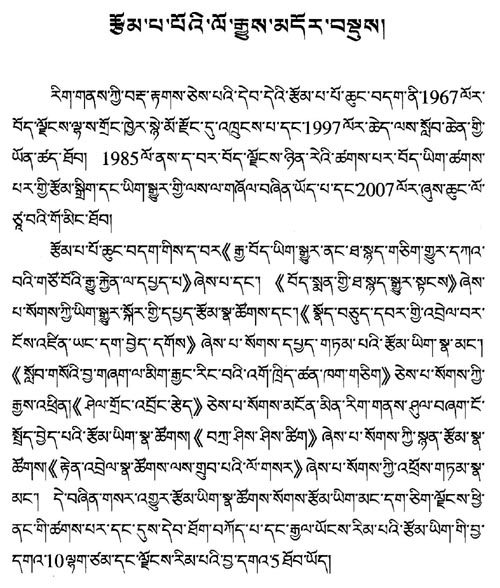 རྩོམ་པ་པོའི་ལོ་རྒྱུས་མདོར་བསྡུས།
རིག་གནས་ཀྱི་བརྡ་རྟགས་ཅེས་པའི་དེབ་དེའི་རྩོམ་པ་པོ་ཆུང་བདག་ནི་1967ལོར་
བོད་ལྗོངས་ལྷ་ས་གྲོང་ཁྱེར་སྙེ་མོ་རྫོང་དུ་འཁྲུངས་པ་དང་1997ལོར་ཆེད་ལས་སློབ་ཆེན་གྱི་
ཡོན་ཚད་ཐོབ། 1985ལོ་ནས་ད་བར་བོད་ལྗོངས་ཉིན་རེའི་ཚགས་པར་བོད་ཡིག་ཚགས་
པར་གྱི་རྩོམ་སྒྲིག་དང་ཡིག་སྒྱུར་གྱི་ལས་ལ་གཞོལ་བཞིན་ཡོད་པ་དང་2007ལོར་ཞུས་ཆུང་ལོ་
ཙཱ་བའི་གོ་མིང་ཐོབ།
རྩོམ་པ་པོ་ཆུང་བདག་གིས་ད་བར《རྒྱ་བོད་ཡིག་སྒྱུར་ནང་ཐ་སྙད་གཅིག་གྱུར་དཀའ་
བའི་གཙོ་བོའི་རྒྱུ་རྐྱེན་ལ་དཔྱད་པ》ཞེས་པ་དང་། 《བོད་སྨན་གྱི་ཐ་སྙད་སྒྱུར་སྟངས》ཞེས་
པ་སོགས་ཀྱི་ཡིག་སྒྱུར་སྐོར་གྱི་དཔྱད་རྩོམ་སྣ་ཚོགས་དང་།《སྣོད་བཅུད་དབར་གྱི་འབྲེལ་བར་
ངོས་འཛིན་ཡང་དག་བྱེད་དགོས》ཞེས་པ་སོགས་དཔྱད་གཏམ་པའི་རྩོམ་ཡིག་སྣ་མང་།
《སློབ་གསོའི་བྱ་གཞག་ལ་མིག་རྒྱང་རིང་བའི་འགོ་ཁྲིད་ཚན་ཁག་གཅིག》ཅེས་པ་སོགས་ཀྱི་
རྒྱས་འཕྲིན།《ཤེལ་གྲོང་འབྲོང་རྩེད》ཅེས་པ་སོགས་མངོན་མིན་རིག་གནས་ཤུལ་བཞག་ངོ་
སྤྲོད་བྱེད་པའི་རྩོམ་ཡིག་སྣ་ཚོགས།《བཀྲ་ཤིས་ཤིས་ཚིག》ཞེས་པ་སོགས་ཀྱི་སྙན་རྩོམ་སྣ་
ཚོགས།《རྟེན་འབྲེལ་སྣ་ཚོགས་ལས་གྲུབ་པའི་ལོ་གསར》ཞེས་པ་སོགས་ཀྱི་འཕྲོས་གཏམ་སྣ་
མང་། དེ་བཞིན་གསར་འགྱུར་རྩོམ་ཡིག་སྣ་ཚོགས་སོགས་རྩོམ་ཡིག་མང་དག་ཅིག་ལྗོངས་ཕྱི་
ནང་གི་ཚགས་པར་དང་དུས་དེབ་ཐོག་བཀོད་པ་དང་རྒྱལ་ཡོངས་རིམ་པའི་རྩོམ་ཡིག་གི་བྱ་
དགའ་10ལྷག་ཙམ་དང་ལྗོངས་རིམ་པའི་བྱ་དགའ་5ཐོབ་ཡོད།